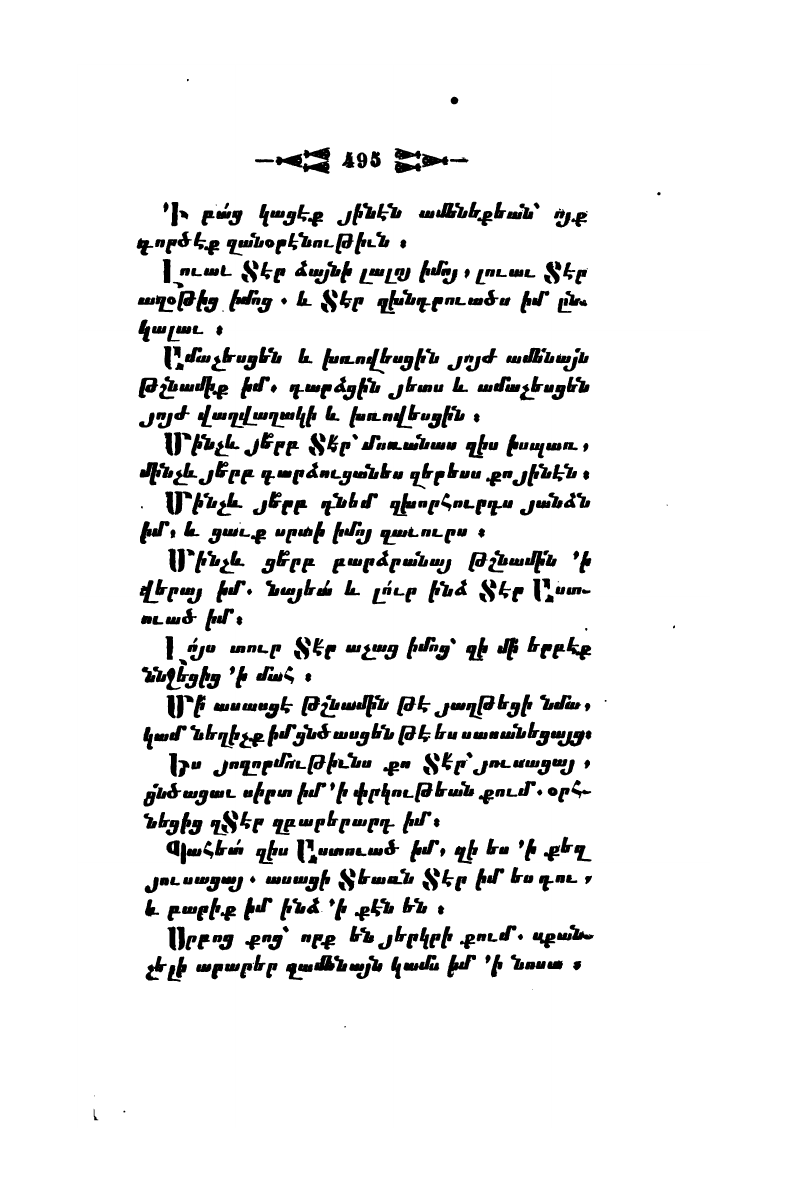 495
՚Ի բա՛ց կացէք յինէն ամենեքեան՝ ո՛յք
գործէք զանօրէնութիւն ։
Լուաւ Տէր ձայնի լալոյ իմոյ, լուաւ Տէր
աղօթից իմոց . և Տէր զխնդրուածս իմ ըն֊
կալաւ ։
Ամաչեսցեն և խռովեսցին յոյժ ամենայն
թշնամիք իմ, դարձցին յետս և ամաչեսցեն
յոյժ վաղվաղակի և խռովեսցին ։
Մինչև յե՞րբ Տէր՝ մոռանաս զիս իսպառ,
մինչև յե՞րբ դարձուցանես զերեսս քո յինէն ։
Մինչև յե՞րբ դնեմ զխորհուրդս յանձն
իմ, և ցաւք սրտի իմոյ զաւուրս ։
Մինչև ցե՞րբ բարձրանայ թշնամին ՚ի
վերայ իմ. նայեա՛ և լո՛ւր ինձ Տէր Աստ֊
ուած իմ։
Լո՛յս տուր Տէ՛ր աչաց իմոց՝ զի մի՛ երբէք
ննջեցից ՚ի մահ ։
Մի՛ ասասցէ թշնամին թէ յաղթեցի նմա,
կամ նեղիչք իմ ցնծասցեն թէ ես սասանեցայց։
Ես յողորմութիւնս քո Տէ՛ր՝ յուսացայ ,
ցնծացաւ սիրտ իմ ՚ի փրկութեան քում. օրհ֊
նեցից զՏէր զբարերարդ իմ։
Պահեա՛ զիս Աստուած իմ, զի ես ՚ի քեզ
յուսացայ . ասացի Տեառն Տէր իմ ես դու ,
և բարիք իմ ինձ ՚ի քէն են ։
Սրբոց քոց՝ որք են յերկրի քում. սքան֊
չելի արարեր զամենայն կամս իմ ՚ի նոսա ։